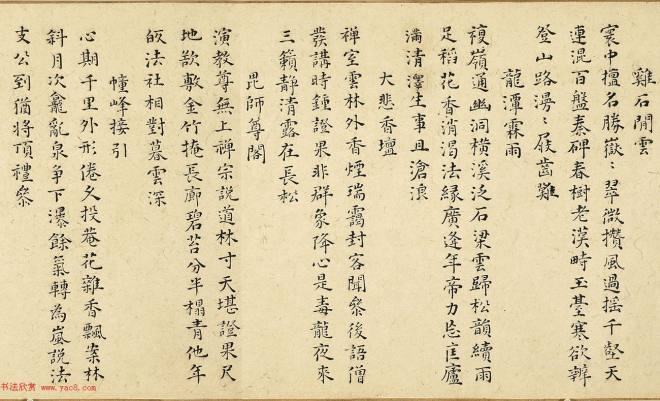 雞石閒雲
寰中擅名勝嶽〻翠微攢風過搖千壑天
連混百盤秦碑春樹老漢畤玉臺寒欲辨
登山路漫〻屐齒難
龍潭霖雨
複嶺通幽洞橫溪泛石梁雲歸松韻續雨
足稻花香消渴法緣廣逢年帝力忘匡廬
滿清澤生事且滄浪
大悲香壇
禅室雲林外香煙瑞靄封客聞參後語僧
發講時鍾證果非群象降心是毒龍夜來
三籟靜清露在長松
毘師尊閣
演教尊無上禅宗說道林寸天堪證果尺
地欲敷金竹掩長廊碧苔分半榻青他年
皈法社相對暮雲深
幢峰接引
心期千里外形倦夕投菴花雜香飄案林
斜月次龕亂泉爭下瀑餘氣轉為嵐說法
支公到猶將頂禮參
书法欣赏
www.yac8.com